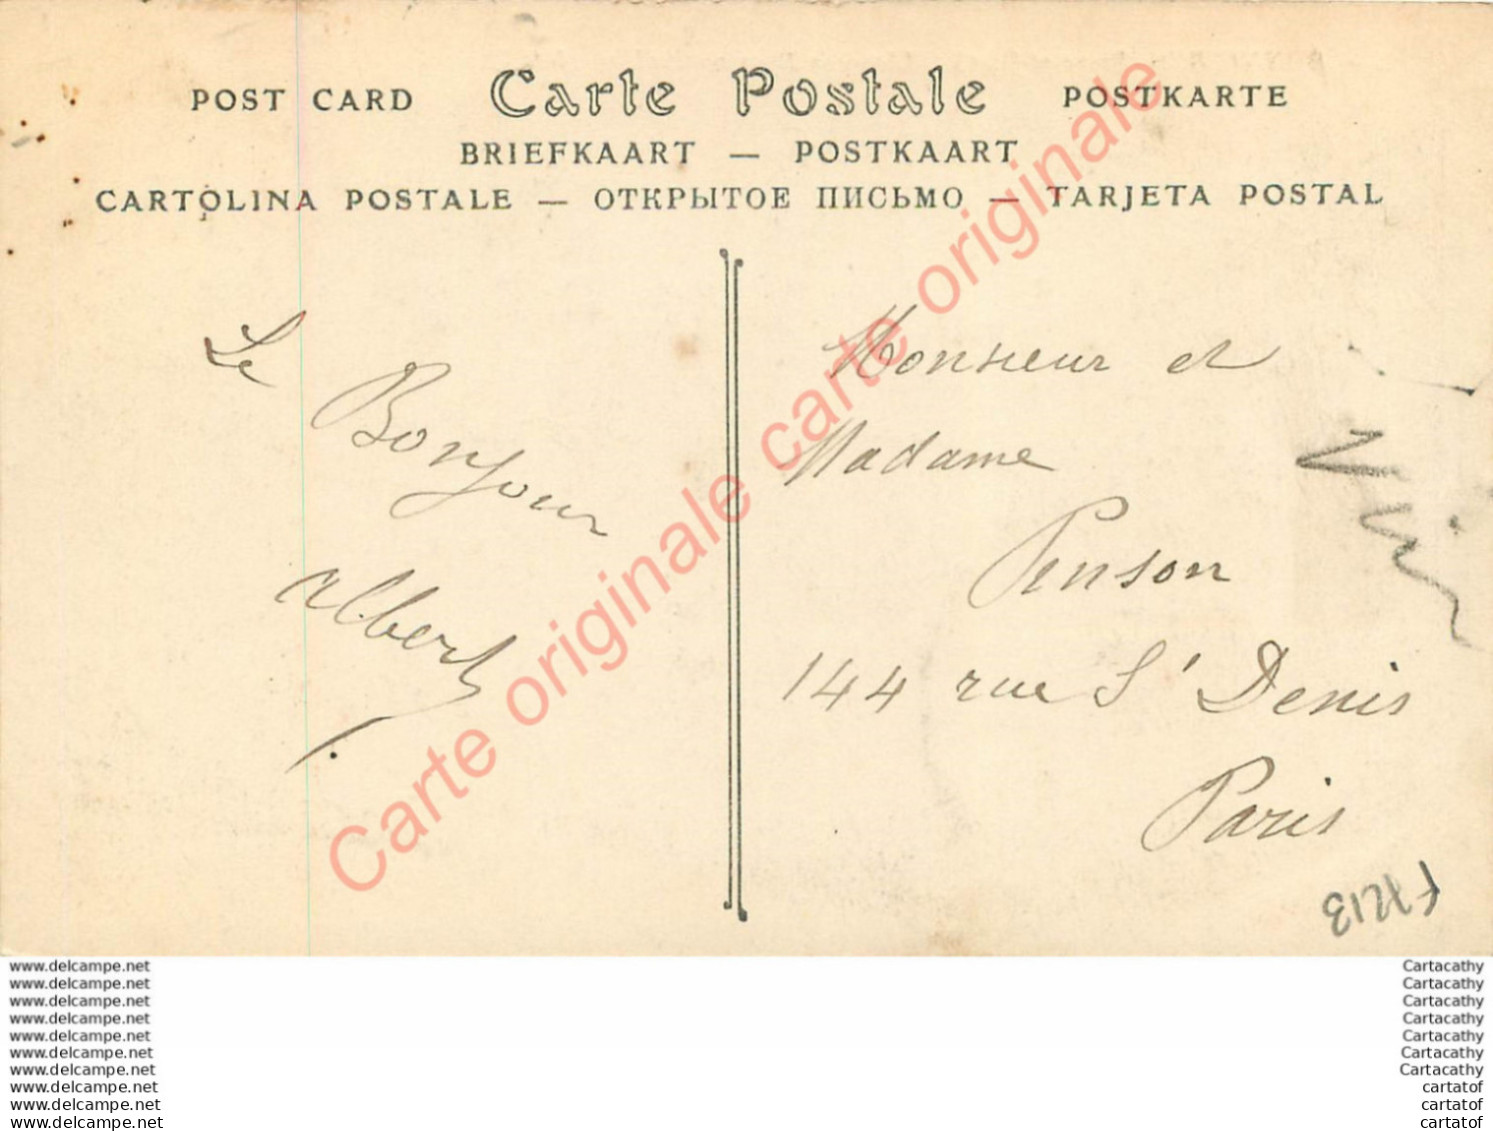 POST CARD Carte Postale POSTKARTE
BRIEFKAART — POSTKAART
CARTOLINA POSTALE — ОТКРЫТОЕ ПИСЬМО — TARJETA POSTAL
Le
Bonjour
Albert
Monsieur et
Madame
Penson
144 rue St Denis
Paris
Carte originale carte originale
www.delcampe.net
www.delcampe.net
www.delcampe.net
www.delcampe.net
www.delcampe.net
www.delcampe.net
www.delcampe.net
www.delcampe.net
www.delcampe.net
www.delcampe.net
Cartacathy
Cartacathy
Cartacathy
Cartacathy
Cartacathy
Cartacathy
Cartacathy
cartatof
cartatof
cartatof